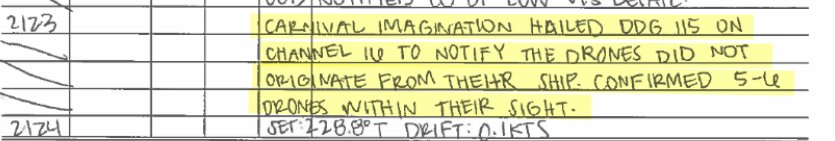 2123 CARNIVAL IMAGINATION HAILED DDG 115 ON
CHANNEL 16 TO NOTIFY THE DRONES DID NOT
ORIGINATE FROM THEIR SHIP. CONFIRMED 5-6
DRONES WITHIN THEIR SIGHT.
2124 SET: 228.8°T DRIFT: 0.1KTS